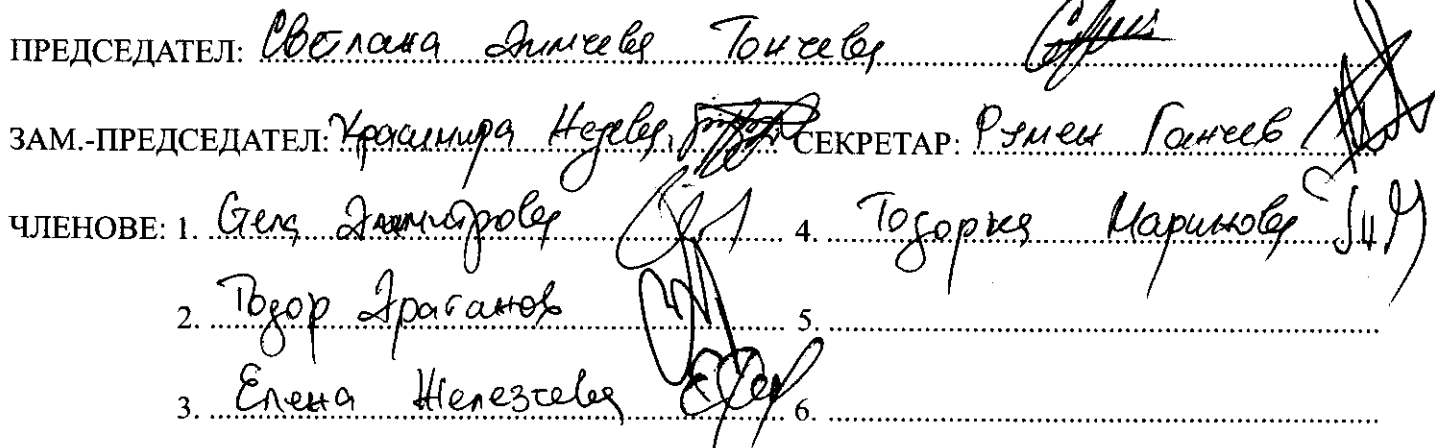 ПРЕДСЕДАТЕЛ: Светлана Димчева Тончева
ЗАМ.-ПРЕДСЕДАТЕЛ: Красимира Недева СЕКРЕТАР: Румен Ганчев
ЧЛЕНОВЕ: 1. Стела Димитрова 4. Тодорка Маринова
2. Тодор Драганов 5.
3. Елена Железчева 6.